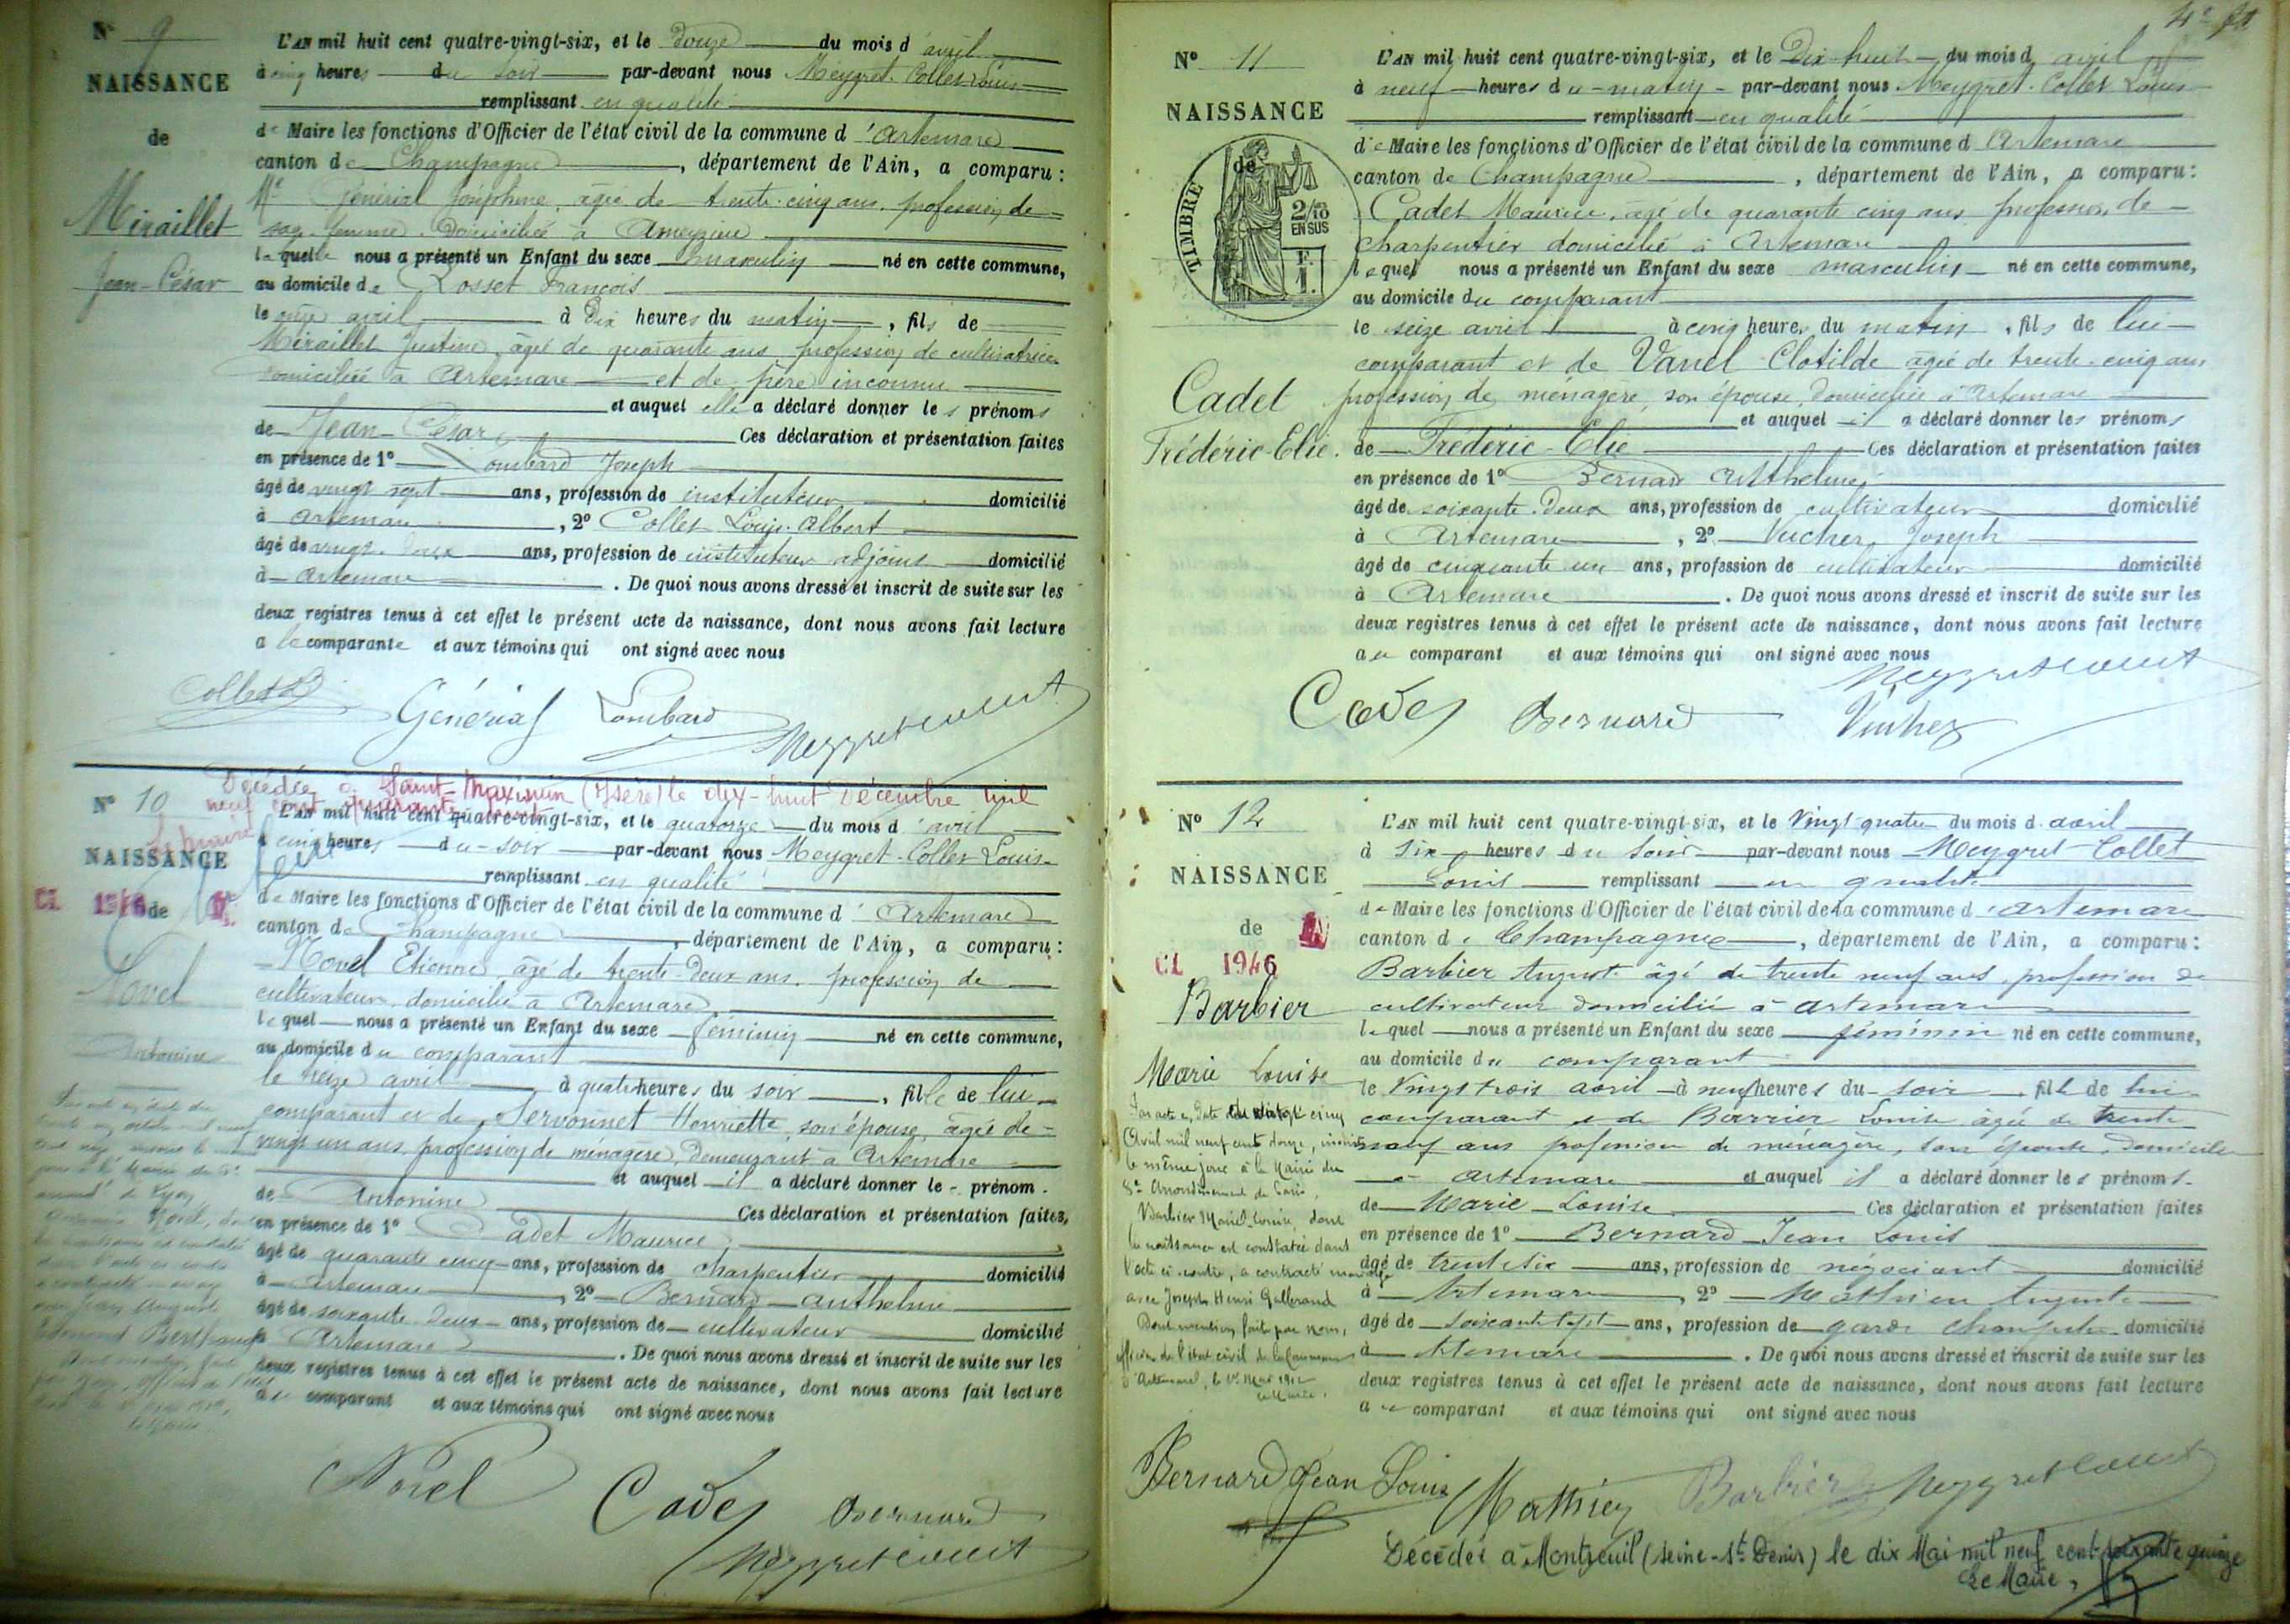 N° 9
NAISSANCE
de
Miraillet
Jean-César
L'AN mil huit cent quatre-vingt-six, et le douze du mois d'avril
à cinq heures du soir par-devant nous Meygret-Collet Louis
remplissant en qualité
de Maire les fonctions d'Officier de l'état civil de la commune d'Artemare
canton de Champagne, département de l'Ain, a comparu :
Génerial Joséphine, agée de trente-cinq ans, profession de
sage-femme, domiciliée à Ameyzieu
laquelle nous a présenté un Enfant du sexe masculin né en cette commune,
au domicile de Rosset François
le onze avril à Dix heures du matin, fils de
Miraillet Justine, agée de quarante ans, profession de cultivatrice
domiciliée à Artemare et de père inconnu
et auquel elle a déclaré donner les prénoms
de Jean-César Ces déclaration et présentation faites
en présence de 1° Lombard Joseph
âgé de vingt sept ans, profession de instituteur domicilié
à Artemare, 2° Collet Louis-Albert
âgé de vingt ans, profession de instituteur adjoint domicilié
à Artemare. De quoi nous avons dressé et inscrit de suite sur les
deux registres tenus à cet effet le présent acte de naissance, dont nous avons fait lecture
a la comparante et aux témoins qui ont signé avec nous
Collet Génerial Lombard
Meygret Louis
Décédée à Saint-Maximin (Isère) le dix-huit Décembre mil
neuf cent quarante
Le Maire
N° 10
NAISSANCE
de
Novel
Antonine
L'AN mil huit cent quatre-vingt-six, et le quatorze du mois d'avril
à cinq heures du soir par-devant nous Meygret-Collet Louis
remplissant en qualité
de Maire les fonctions d'Officier de l'état civil de la commune d'Artemare
canton de Champagne, département de l'Ain, a comparu :
Novel Etienne, âgé de trente-deux ans, profession de
cultivateur, domicilié à Artemare
lequel nous a présenté un Enfant du sexe féminin né en cette commune,
au domicile du comparant
le treize avril à quatre heures du soir, fille de lui
comparant et de Servonnet Henriette, son épouse, agée de
vingt un ans, profession de ménagère, demeurant à Artemare
et auquel il a déclaré donner le prénom
de Antonine Ces déclaration et présentation faites,
en présence de 1° Cadet Maurice
âgé de quarante cinq ans, profession de charpentier domicilié
à Artemare, 2° Bernard Anthelme
âgé de soixante deux ans, profession de cultivateur domicilié
à Artemare. De quoi nous avons dressé et inscrit de suite sur les
deux registres tenus à cet effet le présent acte de naissance, dont nous avons fait lecture
au comparant et aux témoins qui ont signé avec nous
Novel Cadet Bernard
Meygret Louis
N° 11
NAISSANCE
de
TIMBRE
2/10
EN SUS
F.
1.
Cadet
Frédéric-Elie.
L'AN mil huit cent quatre-vingt-six, et le Dix-huit du mois d'avril
à neuf heures du matin par-devant nous Meygret-Collet Louis
remplissant en qualité
de Maire les fonctions d'Officier de l'état civil de la commune d'Artemare
canton de Champagne, département de l'Ain, a comparu :
Cadet Maurice, agé de quarante cinq ans profession de
charpentier domicilié à Artemare
lequel nous a présenté un Enfant du sexe masculin né en cette commune,
au domicile du comparant
le seize avril à cinq heures du matin, fils de lui
comparant et de Vanel Clotilde agée de trente-cinq ans
profession de ménagère, son épouse, domiciliée à Artemare
et auquel il a déclaré donner les prénoms
de Frédéric-Elie Ces déclaration et présentation faites
en présence de 1° Bernard Anthelme
âgé de soixante-deux ans, profession de cultivateur domicilié
à Artemare, 2° Vucher Joseph
âgé de cinquante un ans, profession de cultivateur domicilié
à Artemare. De quoi nous avons dressé et inscrit de suite sur les
deux registres tenus à cet effet le présent acte de naissance, dont nous avons fait lecture
au comparant et aux témoins qui ont signé avec nous
Meygret Louis
Cadet Bernard Vucher
N° 12
NAISSANCE
de
CL 1946
Barbier
Marie Louise
Par acte en date du vingt cinq
Avril mil neuf cent douze, inscrit
le même jour à la Mairie du
8e Arrondissement de Paris,
Barbier Marie-Louise, dont
la naissance est constatée dans
l'acte ci-contre, a contracté mariage
avec Joseph Henri Gallerand
Dont mention faite par nous,
officier de l'état civil de la Commune
d'Artemare, le 1er Mai 1912
L'AN mil huit cent quatre-vingt-six, et le Vingt quatre du mois d'avril
à Six heures du Soir par-devant nous Meygret-Collet
Louis remplissant en qualité
de Maire les fonctions d'Officier de l'état civil de la commune d'Artemare
canton de Champagne, département de l'Ain, a comparu :
Barbier August âgé de trente neuf ans, profession de
cultivateur domicilié à Artemare
lequel nous a présenté un Enfant du sexe féminin né en cette commune,
au domicile du comparant
le Vingt trois avril à neuf heures du soir, fille de lui
comparant et de Barrier Louise agée de trente
neuf ans profession de ménagère, son épouse, domiciliée
à Artemare et auquel il a déclaré donner les prénoms
de Marie Louise Ces déclaration et présentation faites
en présence de 1° Bernard Jean Louis
âgé de trente six ans, profession de négociant domicilié
à Artemare, 2° Mathieu Auguste
âgé de soixante sept ans, profession de garde champêtre domicilié
à Artemare. De quoi nous avons dressé et inscrit de suite sur les
deux registres tenus à cet effet le présent acte de naissance, dont nous avons fait lecture
au comparant et aux témoins qui ont signé avec nous
Bernard Jean Louis Mathieu Barbier Meygret Louis
Décédée à Montreuil (Seine-St-Denis) le dix Mai mil neuf cent soixante quinze
Le Maire,